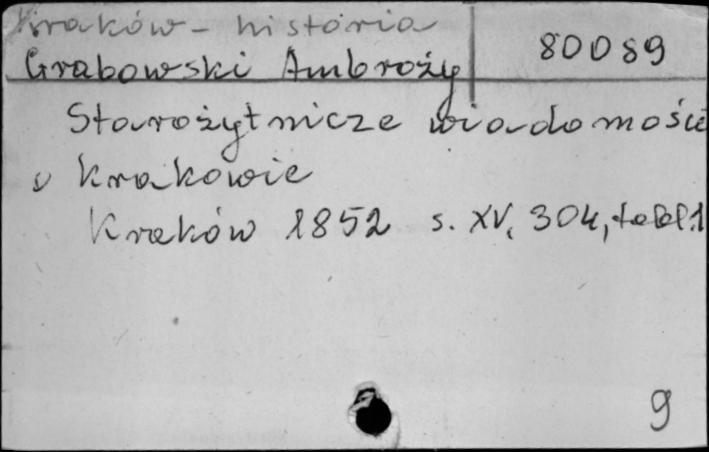 Kraków - historia
80089
Grabowski Ambroży
Starożytnicze wiadomości
o Krakowie
Kraków 1852 s. XV, 304, tabl. 1
9